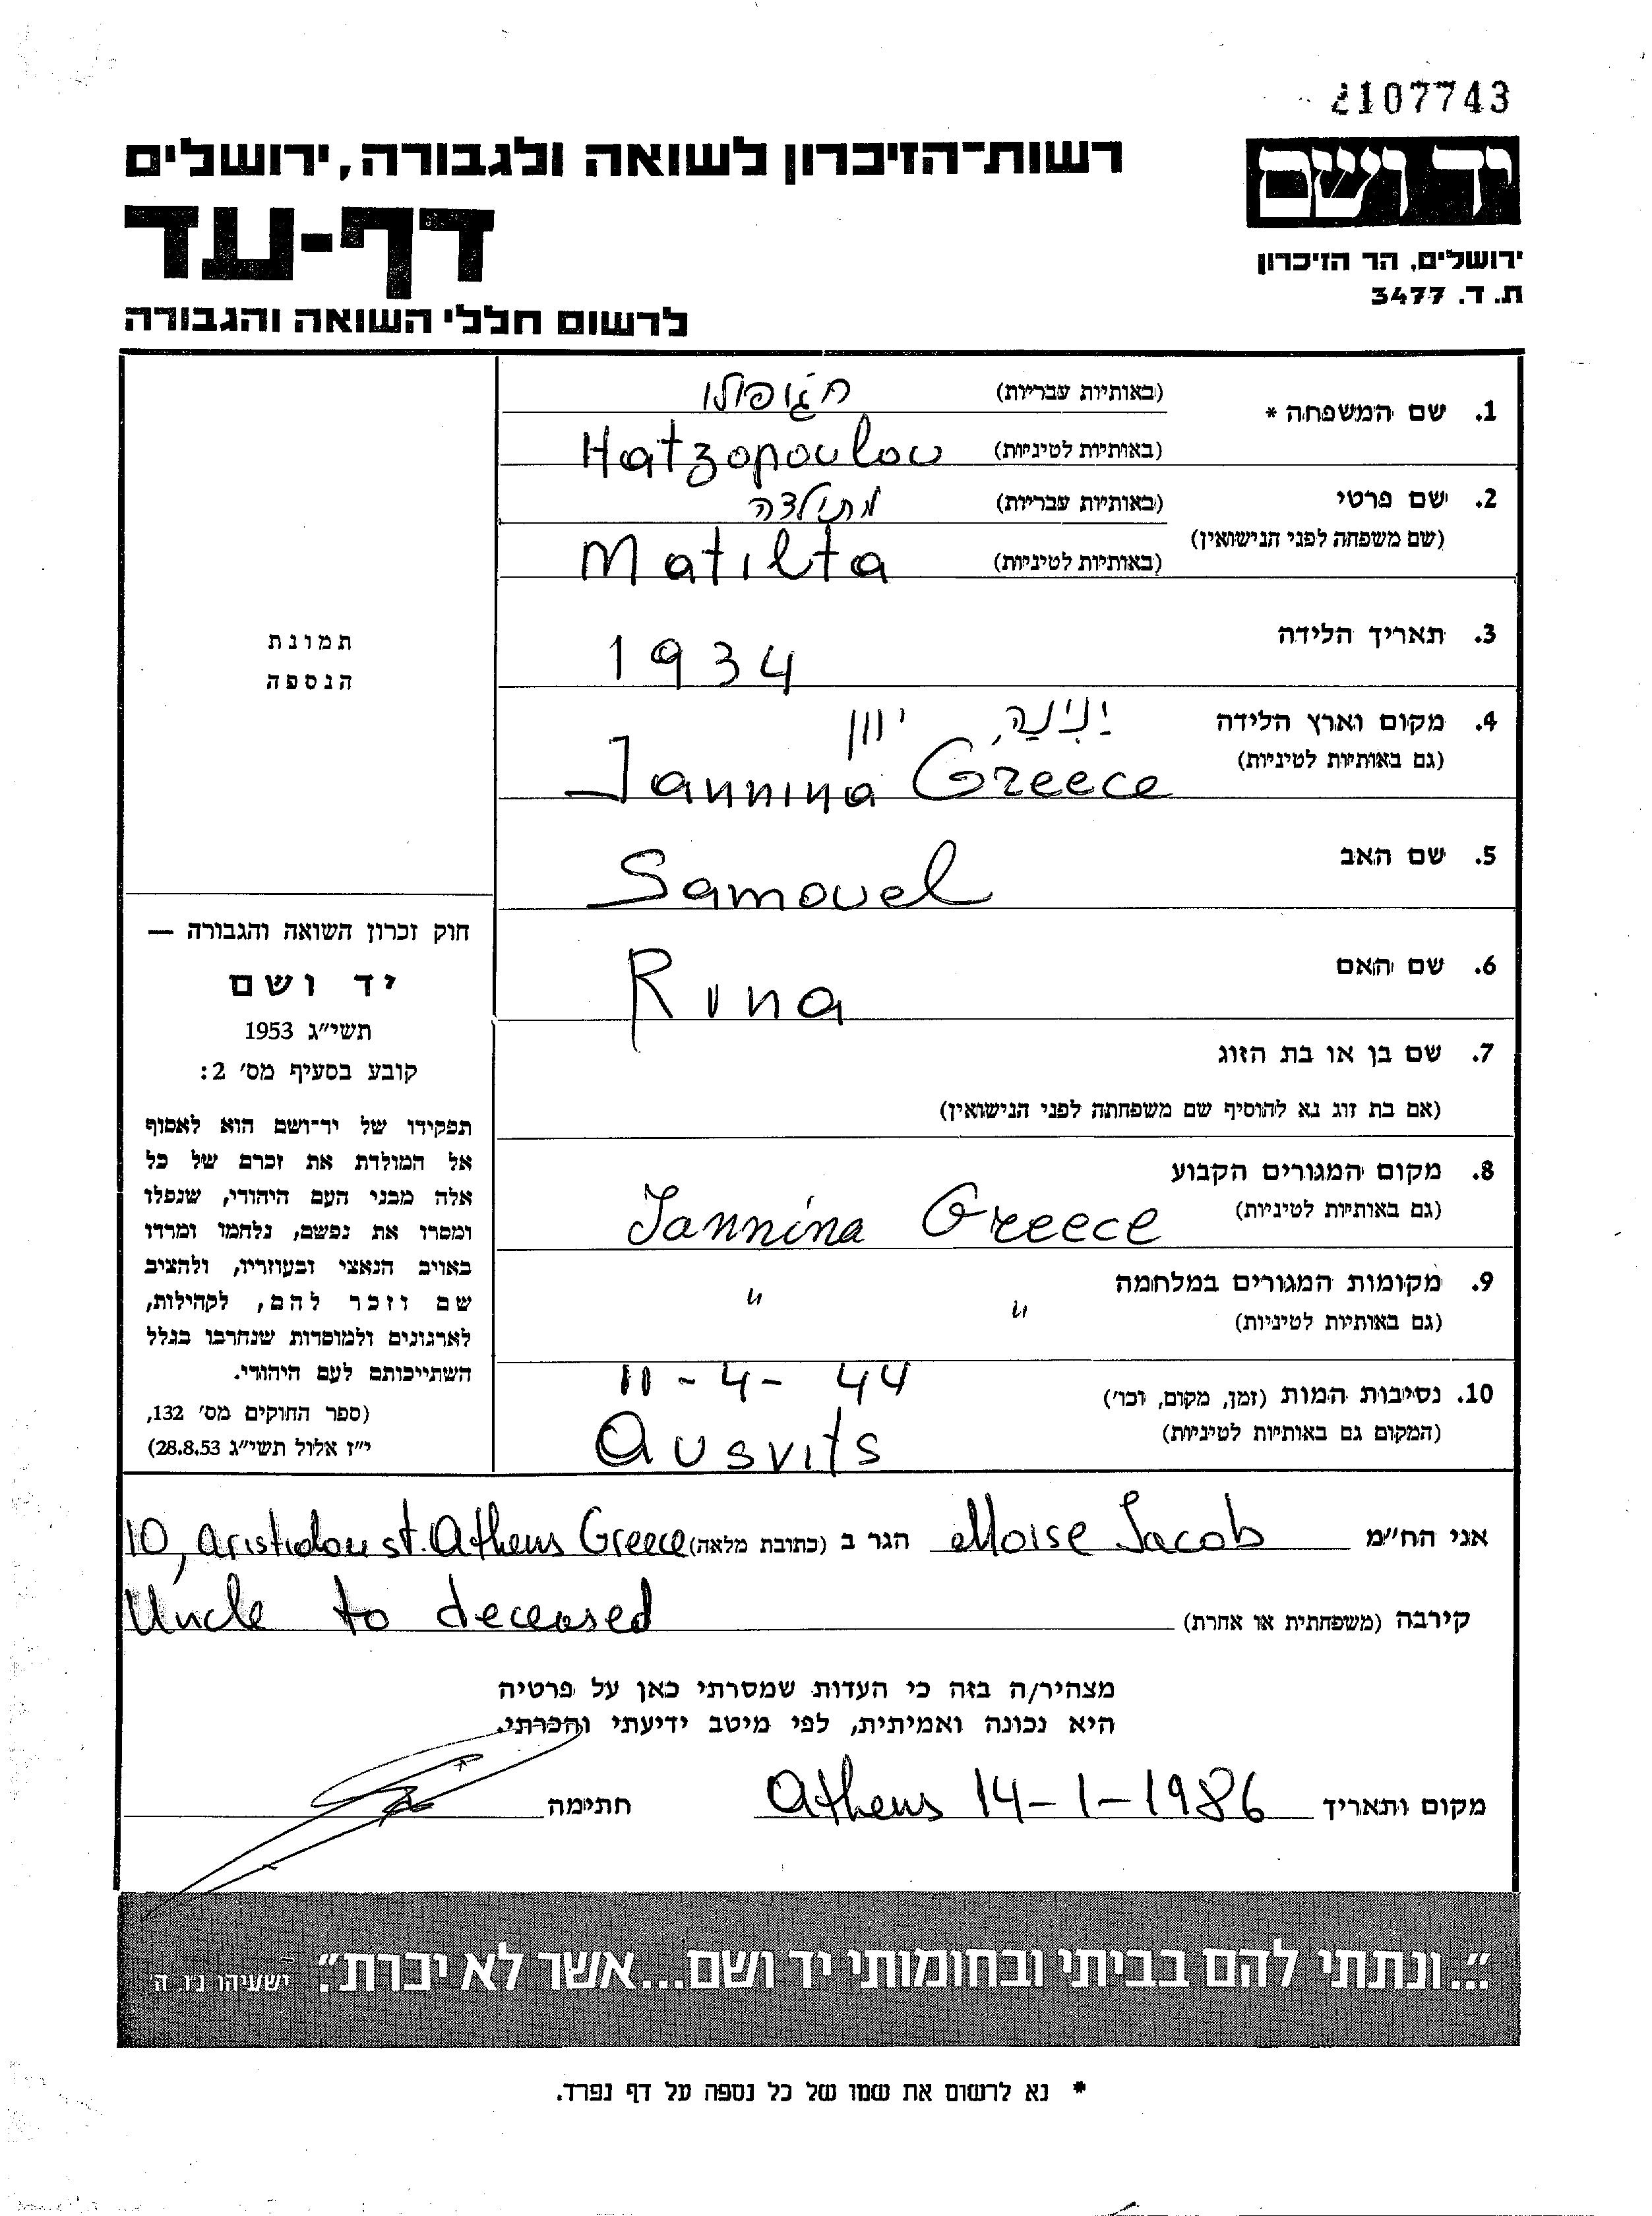 2107743
רשות-הזיכרון לשואה ולגבורה, ירושלים
יד ושם
דף-עד
ירושלים, הר הזיכרון
ת. ד. 3477
לרשום חללי השואה והגבורה
1. שם המשפחה * (באותיות עבריות) חג'ופולו
(באותיות לטיניות) Hatzopoulou
2. שם פרטי (באותיות עבריות) מתילדה
(שם משפחה לפני הנישואין) (באותיות לטיניות) Matilta
3. תאריך הלידה 1934
4. מקום וארץ הלידה יַנִינַה, יוון
(גם באותיות לטיניות) Jannina Greece
5. שם האב Samouel
6. שם האם Rina
7. שם בן או בת הזוג
(אם בת זוג נא להוסיף שם משפחתה לפני הנישואין)
8. מקום המגורים הקבוע
(גם באותיות לטיניות) Jannina Greece
9. מקומות המגורים במלחמה " "
(גם באותיות לטיניות)
10. נסיבות המות (זמן, מקום, וכו') 11-4-44
(המקום גם באותיות לטיניות) Ausvits
תמונת
הנספה
חוק זכרון השואה והגבורה —
יד ושם
תשי"ג 1953
קובע בסעיף מס' 2:
תפקידו של יד-ושם הוא לאסוף
אל המולדת את זכרם של כל
אלה מבני העם היהודי, שנפלו
ומסרו את נפשם, נלחמו ומרדו
באויב הנאצי ובעוזריו, ולהציב
שם וזכר להם, לקהילות,
לארגונים ולמוסדות שנחרבו בגלל
השתייכותם לעם היהודי.
(ספר החוקים מס' 132,
י"ז אלול תשי"ג 28.8.53)
אני הח"מ Moise Jacob הגר ב (כתובת מלאה) 10, Aristidou st. Athens Greece
קירבה (משפחתית או אחרת) Uncle to deceased
מצהיר/ה בזה כי העדות שמסרתי כאן על פרטיה
היא נכונה ואמיתית, לפי מיטב ידיעתי והכרתי.
מקום ותאריך Athens 14-1-1986 חתימה
"...ונתתי להם בביתי ובחומותי יד ושם...אשר לא יכרת". ישעיהו נ"ו, ה'
* נא לרשום את שמו של כל נספה על דף נפרד.